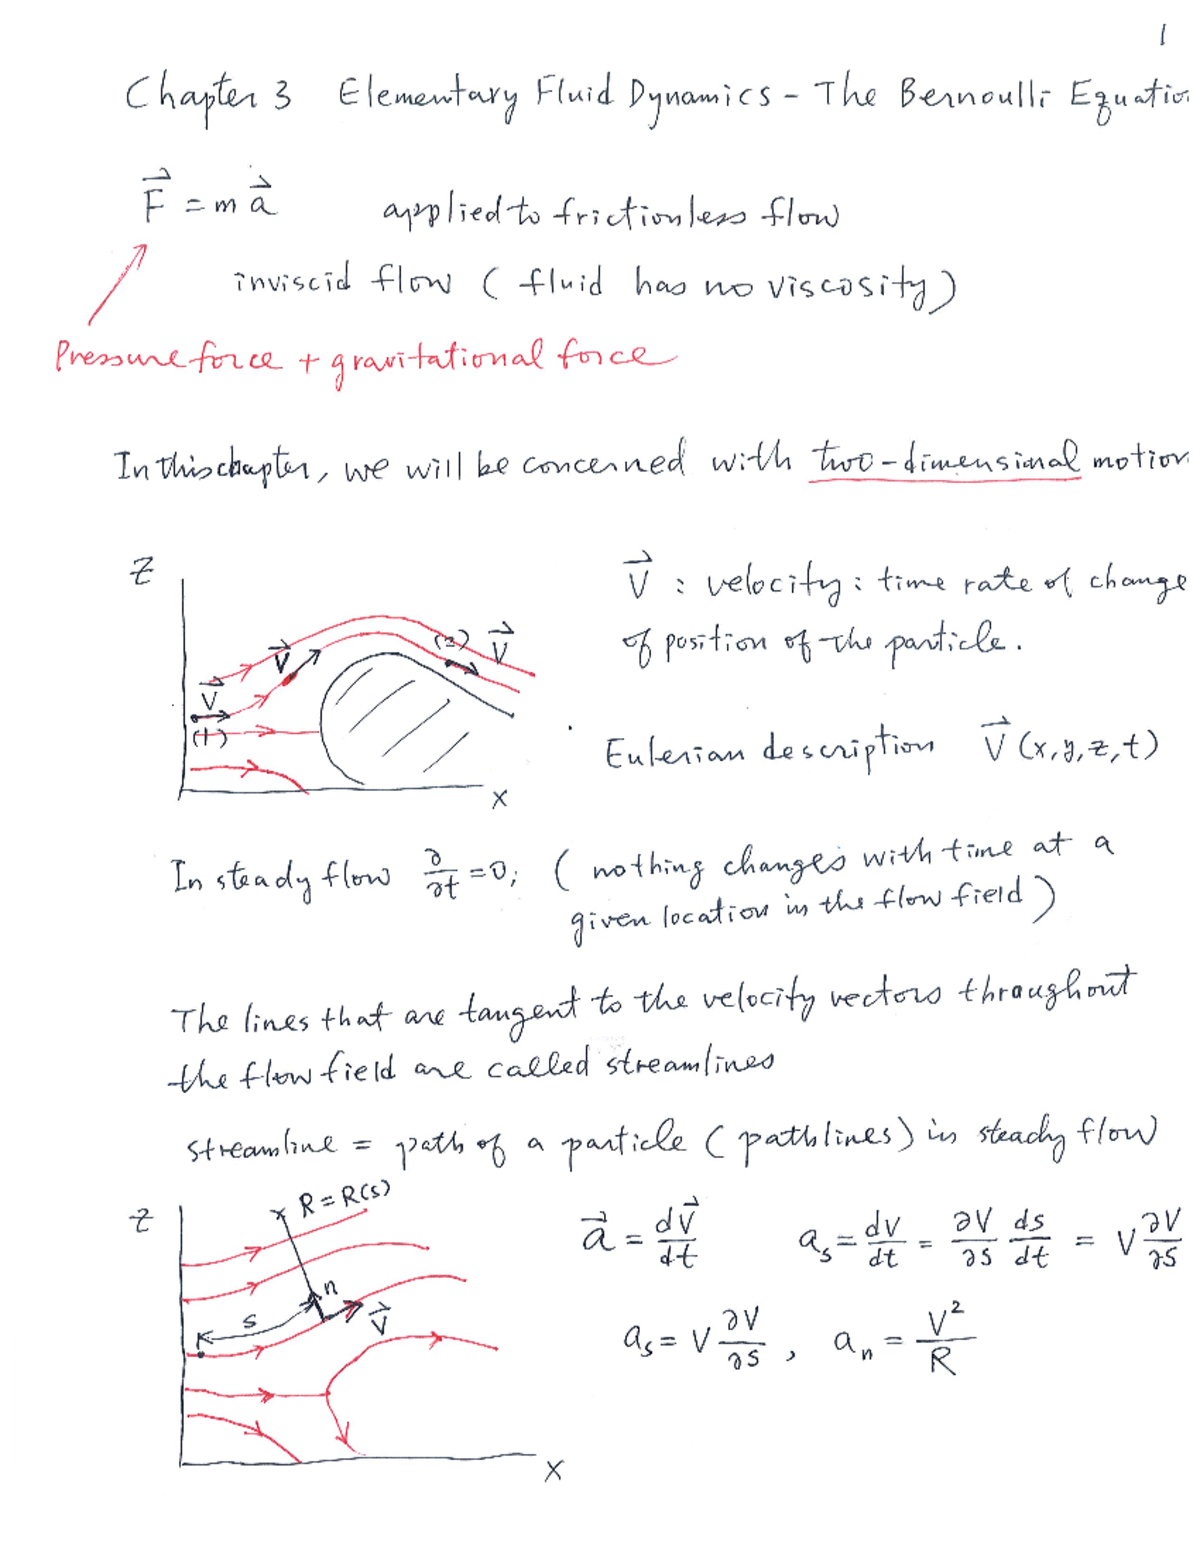 1
Chapter 3 Elementary Fluid Dynamics - The Bernoulli Equatio
F⃗ = m a⃗ applied to frictionless flow
inviscid flow ( fluid has no viscosity)
Pressure force + gravitational force
In this chapter, we will be concerned with two-dimensional motion
Z
V⃗ : velocity : time rate of change
of position of the particle.
(2) V⃗
V⃗
V⃗
(1)
Eulerian description V⃗ (x,y,z,t)
X
In steady flow ∂/∂t = 0; ( nothing changes with time at a
given location in the flow field )
The lines that are tangent to the velocity vectors throughout
the flow field are called streamlines
streamline = path of a particle ( pathlines) in steady flow
Z
R = R(s)
a⃗ = dV⃗/dt a_s = dV/dt = ∂V/∂s ds/dt = V ∂V/∂s
n
s
V⃗
a_s = V ∂V/∂s , a_n = V²/R
X